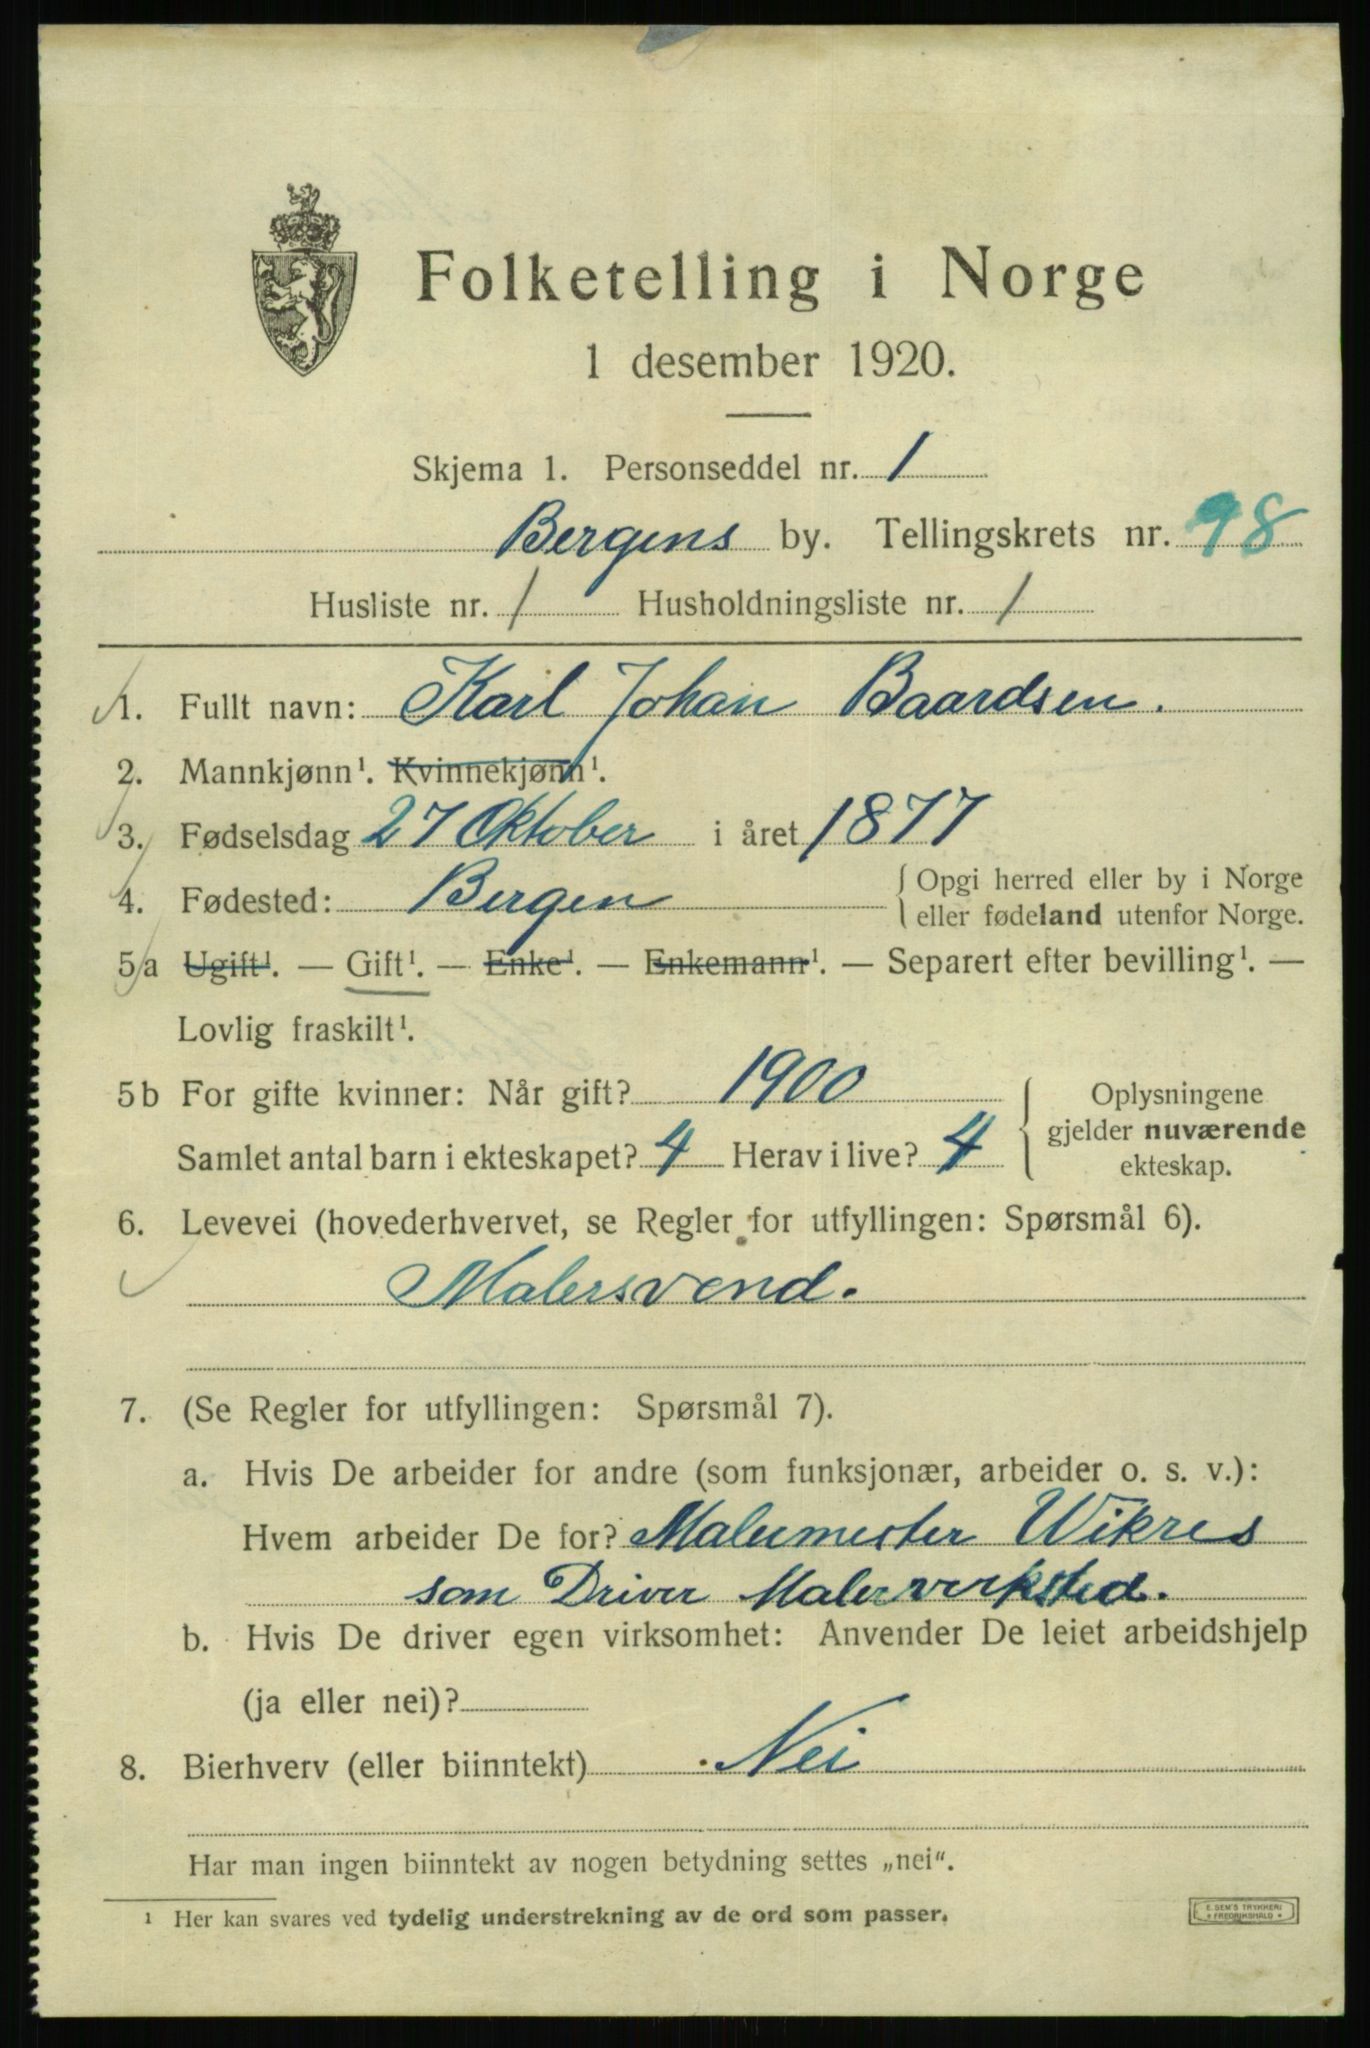 Folketelling i Norge
1 desember 1920.
Skjema 1. Personseddel nr. 1
Bergens by. Tellingskrets nr. 98
Husliste nr. 1 Husholdningsliste nr. 1
1. Fullt navn: Karl Johan Baardsen.
2. Mannkjønn¹. Kvinnekjønn¹.
3. Fødselsdag 27 Oktober i året 1877
4. Fødested: Bergen { Opgi herred eller by i Norge
eller fødeland utenfor Norge.
5a Ugift¹. — Gift¹. — Enke¹. — Enkemann¹. — Separert efter bevilling¹. —
Lovlig fraskilt¹.
5b For gifte kvinner: Når gift? 1900
Samlet antal barn i ekteskapet? 4 Herav i live? 4
{ Oplysningene
gjelder nuværende
ekteskap.
6. Levevei (hovederhvervet, se Regler for utfyllingen: Spørsmål 6).
Malersvend.
7. (Se Regler for utfyllingen: Spørsmål 7).
a. Hvis De arbeider for andre (som funksjonær, arbeider o. s. v.):
Hvem arbeider De for? Malermester Wikres
som Driver Malerverksted.
b. Hvis De driver egen virksomhet: Anvender De leiet arbeidshjelp
(ja eller nei)?
8. Bierhverv (eller biinntekt) Nei
Har man ingen biinntekt av nogen betydning settes „nei“.
¹ Her kan svares ved tydelig understrekning av de ord som passer.
E. SEM'S TRYKKERI
FREDRIKSHALD